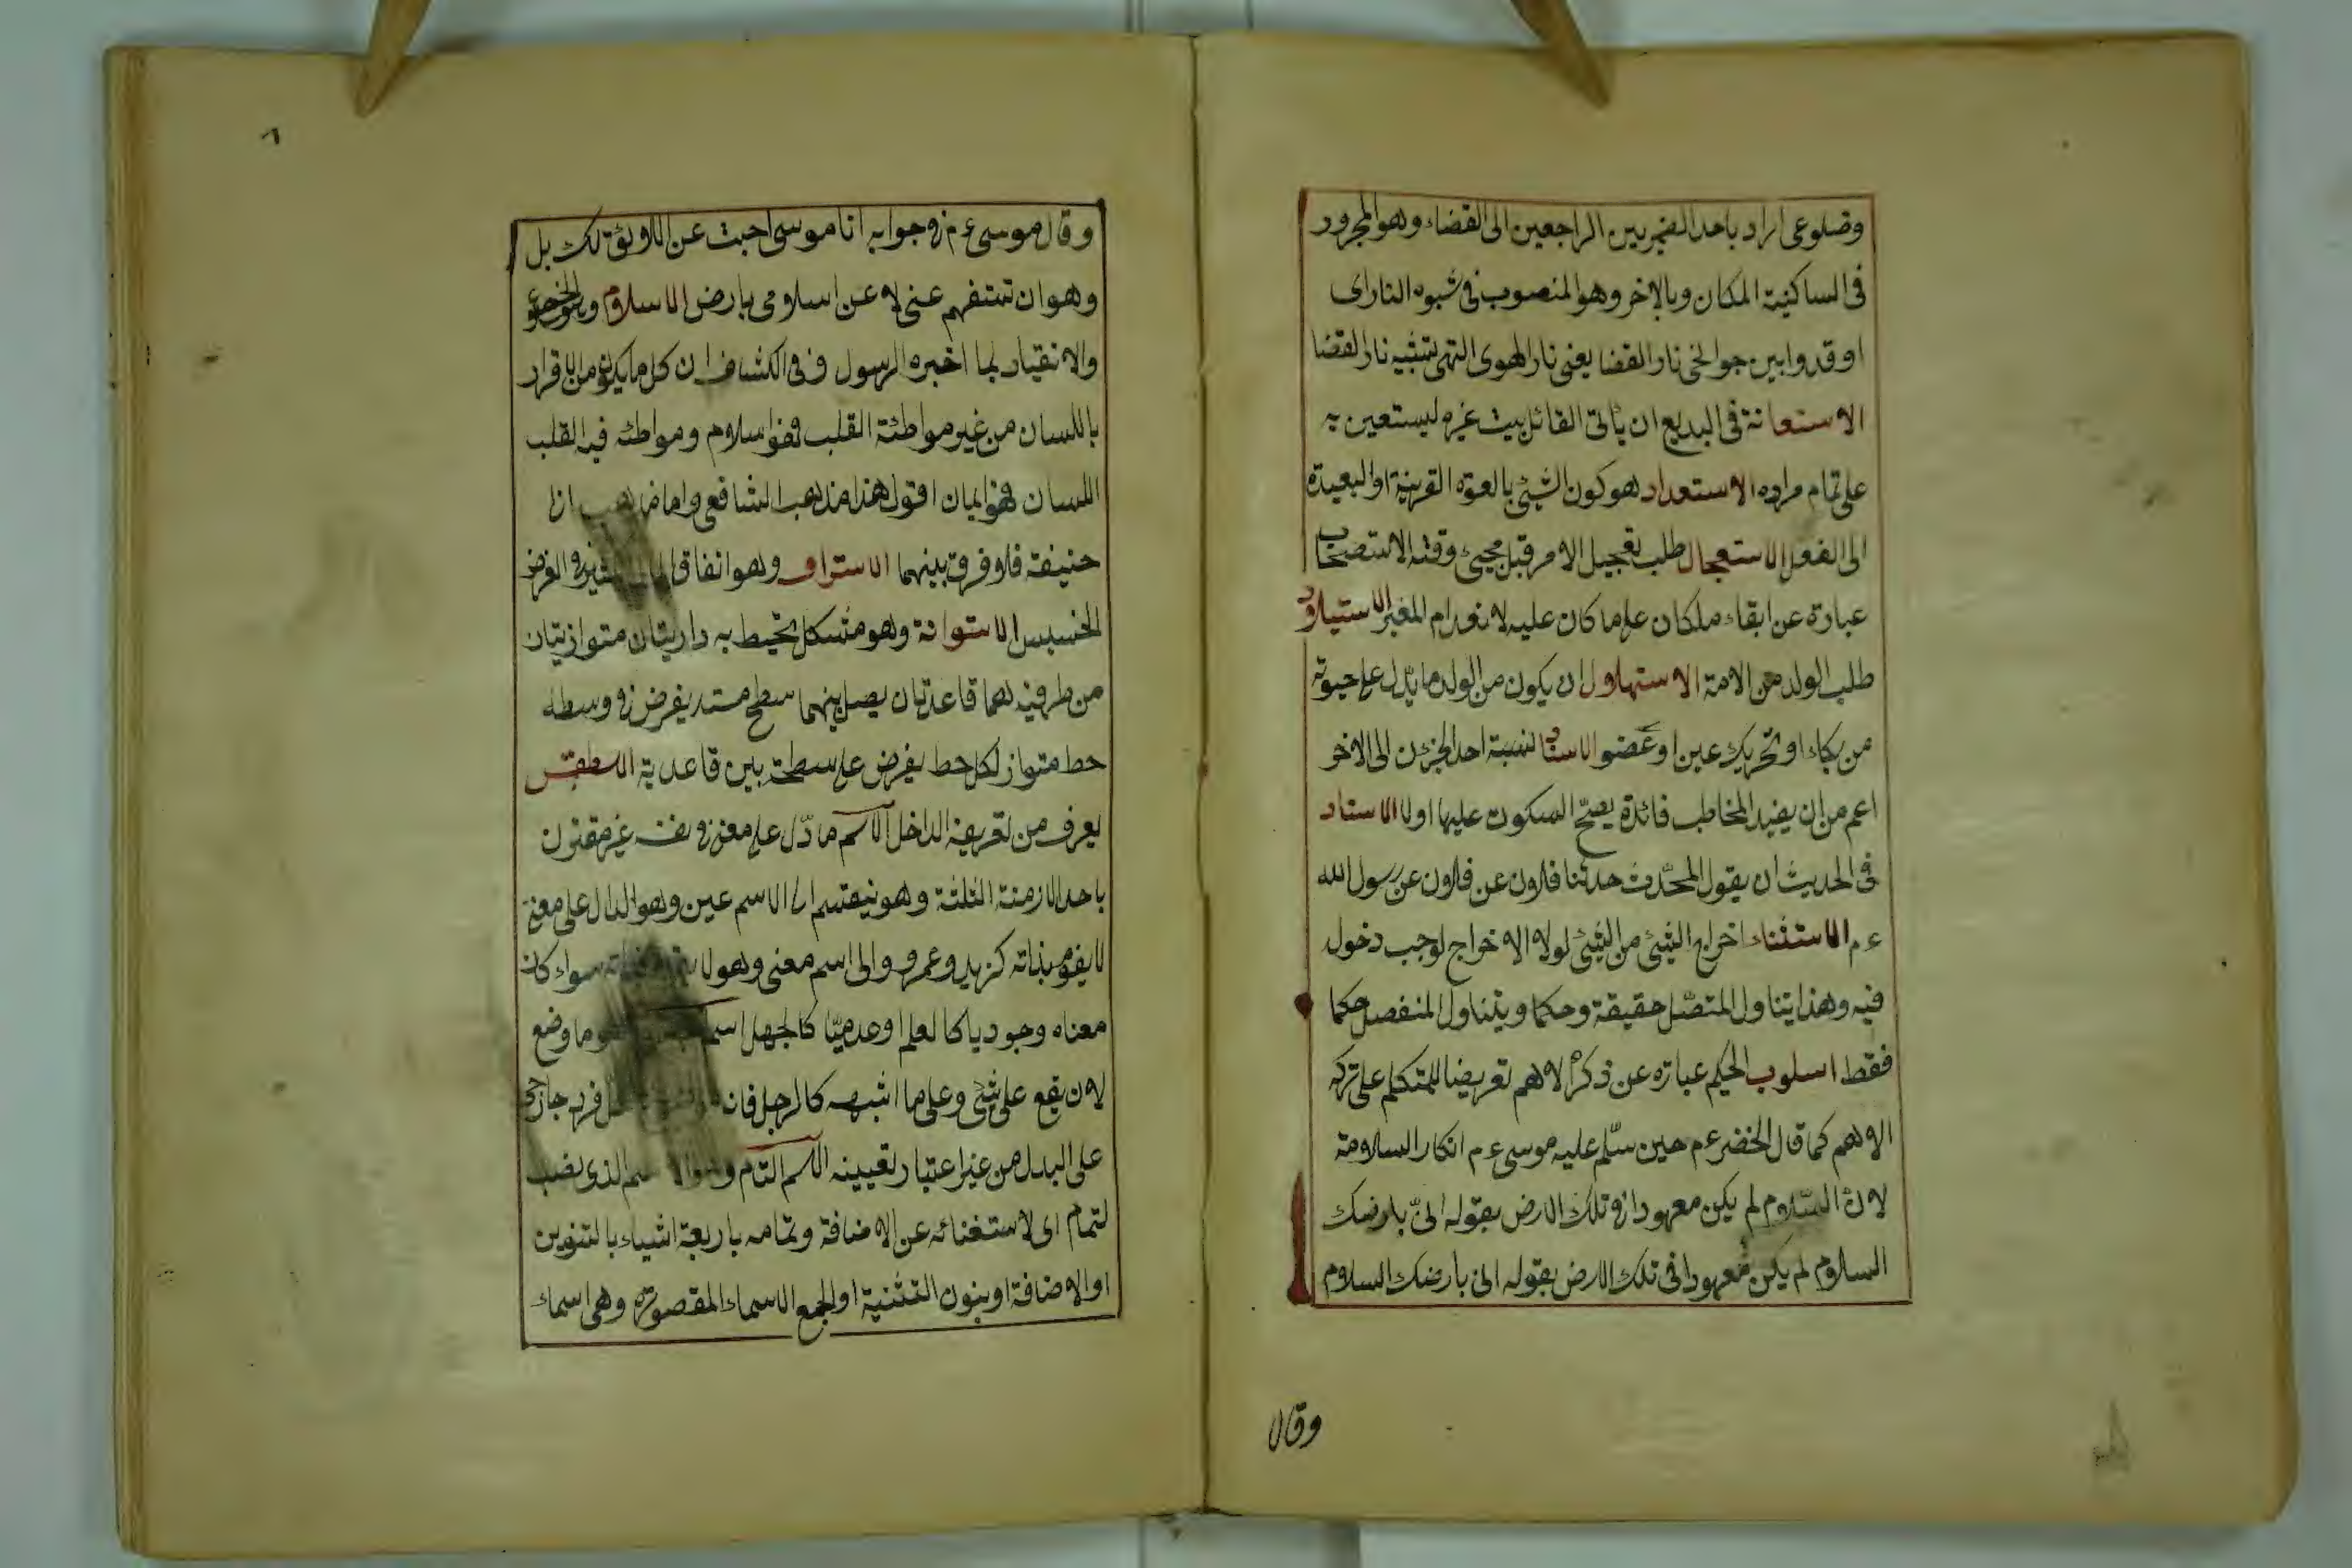 وضلوعى اراد باحد الضميرين الراجعين الى القضاء وهو المجرور
فى الساكنية المكان وبالاخر وهو المنصوب فى شبوه النار اى
اوقدوا بين جوانحى نار القضا يعنى نار الهوى التى تشبه نار القضا
الاستعانة فى البديع ان يأتى القائل ببيت غيره ليستعين به
على تمام مراده الاستعداد هو كون الشئ بالقوة القريبة او البعيدة
الى الفعل الاستعجال طلب تعجيل الامر قبل مجيئ وقته الاستصحاب
عبارة عن ابقاء ماكان على ما كان عليه لانعدام المغير الاستيلاد
طلب الولد من الامة الاستهلال ان يكون من الولد ما يدل على حيوته
من بكاء او تحريك عين او عضو الاسناد نسبة احد الجزئين الى الاخر
اعم من ان يفيد المخاطب فائدة يصح السكوت عليها اولا الاسناد
فى الحديث ان يقول المحدث حدثنا فلان عن فلان عن رسول الله
ع م الاستثناء اخراج الشئ من الشئ لولا الاخراج لوجب دخول
فيه وهذا يتناول المتصل حقيقة وحكما ويتناول المنفصل حكما
فقط اسلوب الحكيم عبارة عن ذكر الاهم تعريضا للمتكلم على تركه
الاهم كما قال الخضر ع م حين سلم عليه موسى ع م انكار السلامة
لان السلام لم يكن معهودا فى تلك الارض بقوله انى بارضك
السلام لم يكن معهودا فى تلك الارض بقوله انى بارضك السلام
وقال
٦
وقال موسى ع م فى جوابه انا موسى اجبت عن اللائق لك بل
وهو ان تستفهم عنى لا عن اسلامى بارض الاسلام وهو الخضوع
والانقياد لما اخبره الرسول وفى الكشاف ان كل ما يكون من الاقرار
باللسان من غير مواطئة القلب فهو اسلام ومواطئه فيه القلب
اللسان فهو ايمان اقول هذا مذهب الشافعى واما مذهب ابى
حنيفة فلا فرق بينهما الاسراف وهو انفاق المال الكثير فى الغرض
الخسيس الاستوانة وهو مشكل يحيط به دايرتان متوازيتان
من طرفيه هما قاعدتان يصل بينهما سطح مستدير يفرض فى وسطه
خط متواز لكل خط يفرض على سطحه بين قاعدية الاسطقس
يعرف من تعريف الداخل الاسم ما دل على معنى فى نفسه غير مقترن
باحد الازمنة الثلثة وهو ينقسم الى الاسم عين وهو الدال على معنى
لا يقوم بذاته كزيد وعمرو والى اسم معنى وهو لا يقوم بذاته سواء كان
معناه وجوديا كالعلم او عدميا كالجهل اسم وهو ما وضع
لان يقع على شئ وعلى ما اشبهه كالرجل فانه فرد جارى
على البدل من غير اعتبار تعيينه الاسم التام وهو الاسم الذى نصب
لتمام اى لاستغنائه عن الاضافة وتمامه باربعة اشياء بالتنوين
او الاضافة او بنون التثنية او الجمع الاسماء المقصورة وهى اسماء